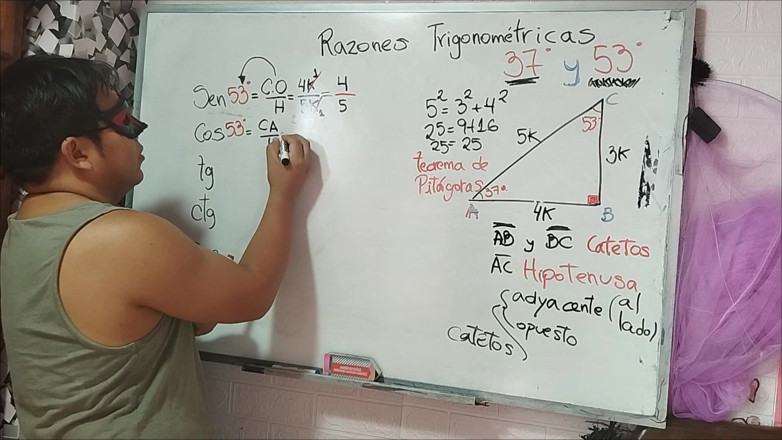 Razones Trigonométricas
37° y 53°
Sen 53° = C.O/H = 4K/5K = 4/5
Cos 53° = CA
tg
ctg
5² = 3² + 4²
25 = 9+16
25 = 25
teorema de
Pitágoras
C
53°
5K
3K
37°
A
4K
B
AB y BC Catetos
AC Hipotenusa
catetos
adyacente (al lado)
opuesto